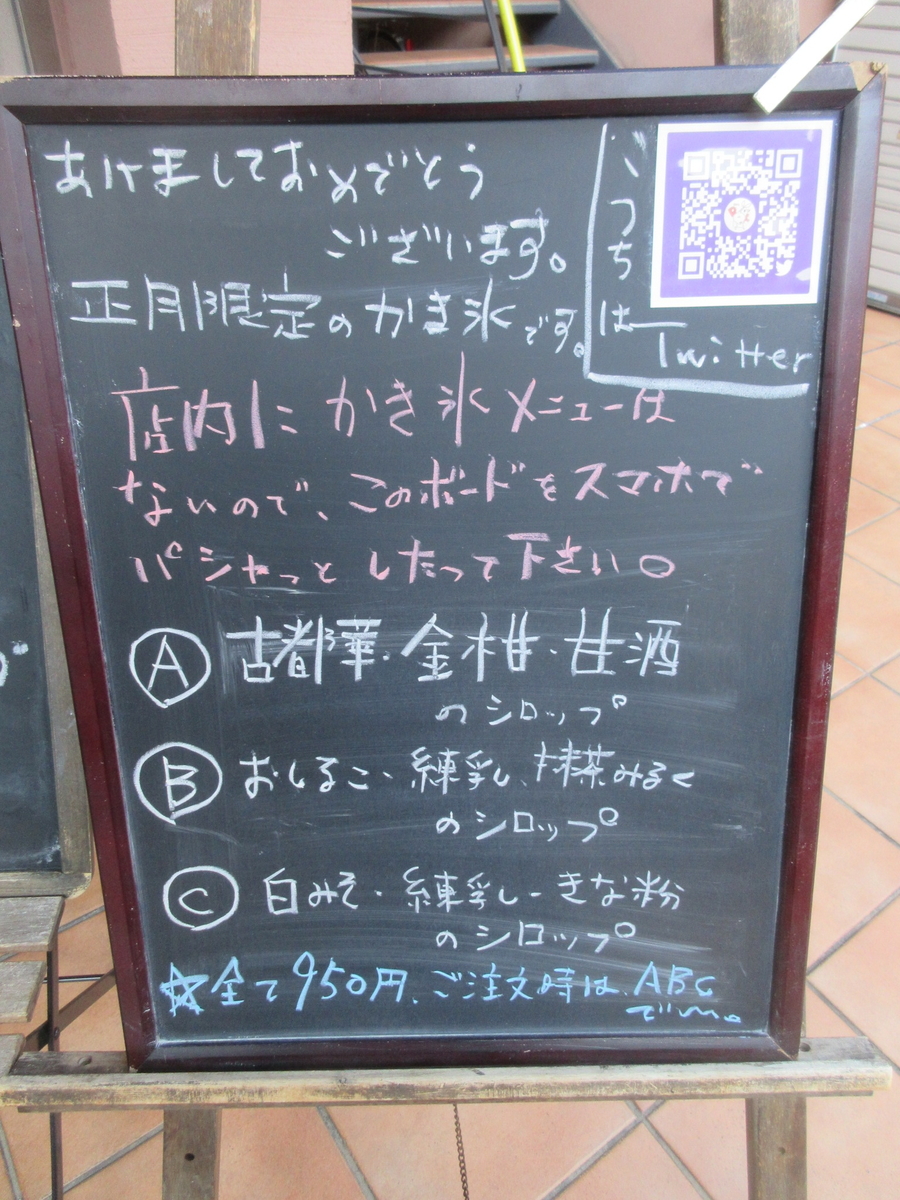 あけましておめでとう
ございます。
正月限定のかき氷です。
こっちは
Twitter
店内にかき氷メニューは
ないので、このボードをスマホで
パシャっとしたって下さい。
Ⓐ 古都華・金柑・甘酒
のシロップ
Ⓑ おしるこ・練乳・抹茶みるく
のシロップ
Ⓒ 白みそ・練乳・きな粉
のシロップ
☆全て950円、ご注文時は、ABC